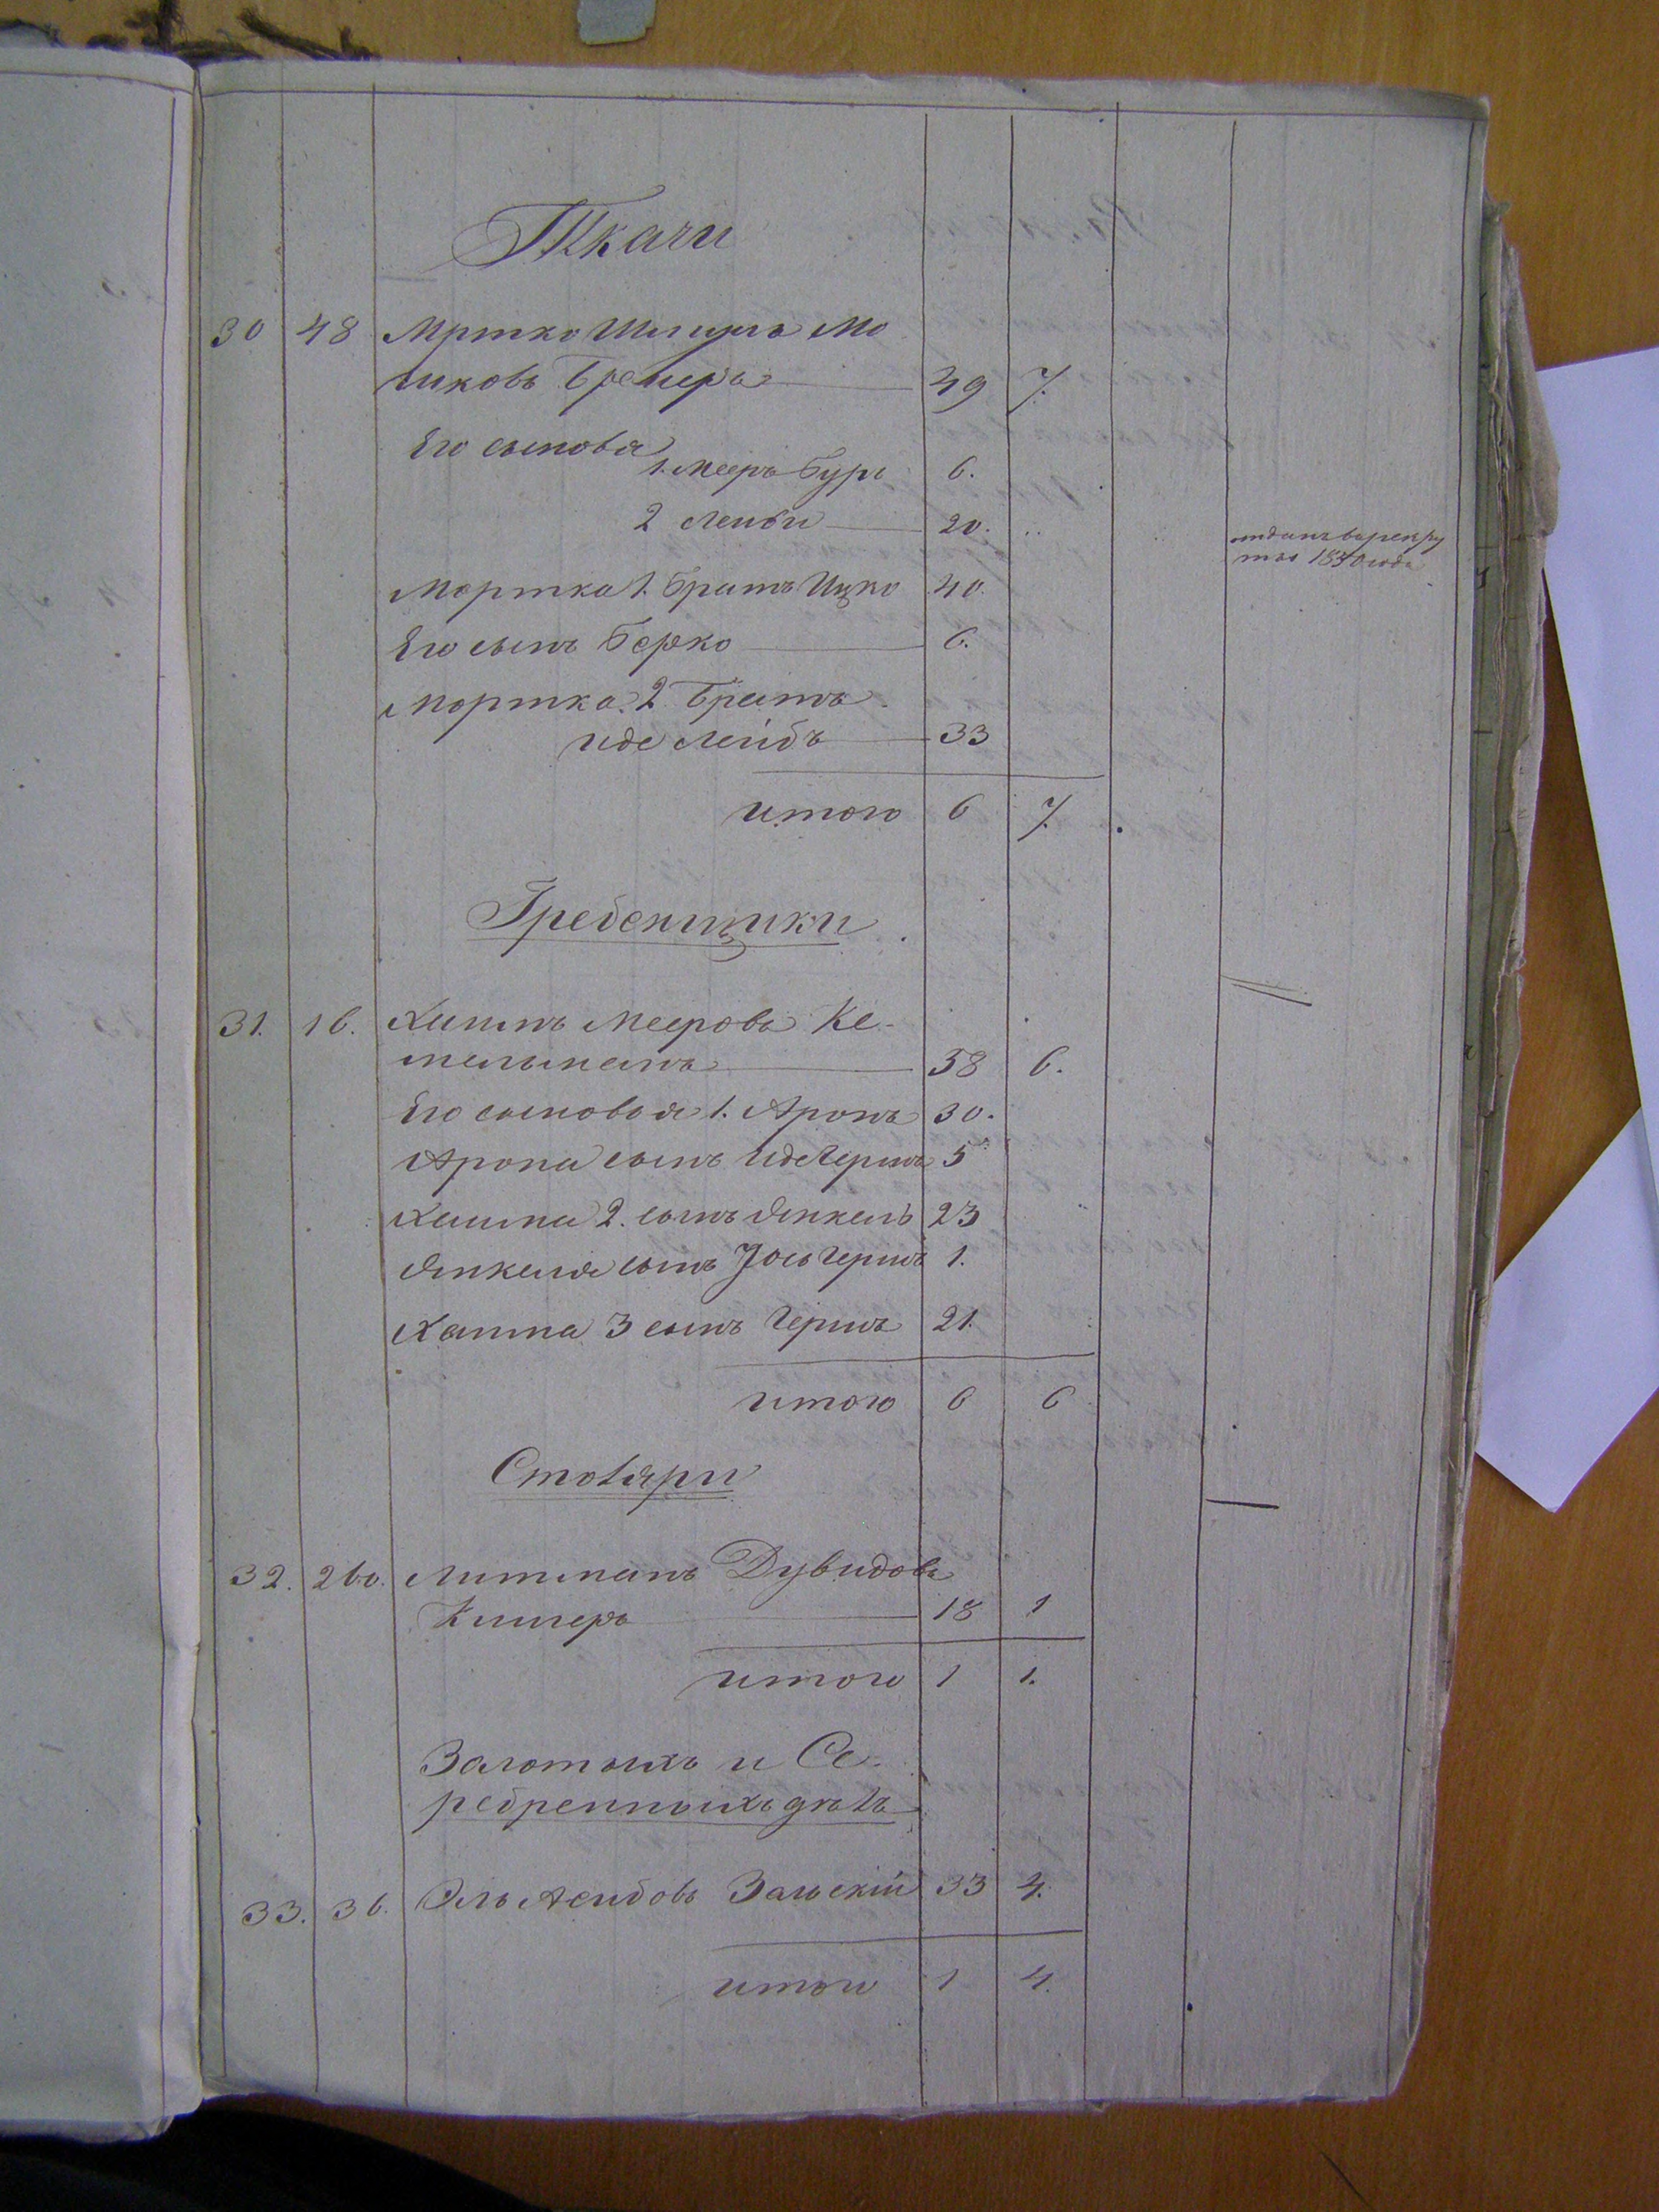 Ткачи
30 48 Мртко Шмуль Мо
шковъ Бремеръ 49 7.
Его сыновья
1. Мееръ Буръ 6.
2 Лейби 20. ..
отданъ въ рекру
ты 1830 года
Мортка 1. Братъ Ицко 40.
Его сынъ Берко 6.
Мортка. 2 Братъ
Иде Лейбъ 33
итого 6 7.
Гребенщики
31. 16. Хаимъ Мееровъ Ке-
мельманъ 58 6.
Его сыновья 1. Аронъ 30.
Арона сынъ Иде Гершъ 5
Хаима 2. сынъ Янкель 23
Янкеля сынъ Іось Гершъ 1.
Хаима 3 сынъ Гершъ 21.
итого 6 6
Столяри
32. 260. Литманъ Дувидовъ
18 1
итого 1 1.
Золотыхъ и Се-
ребренныхъ делъ
33. 36. Эль Лейбовъ Зальскій 33 4.
итого 1 4.